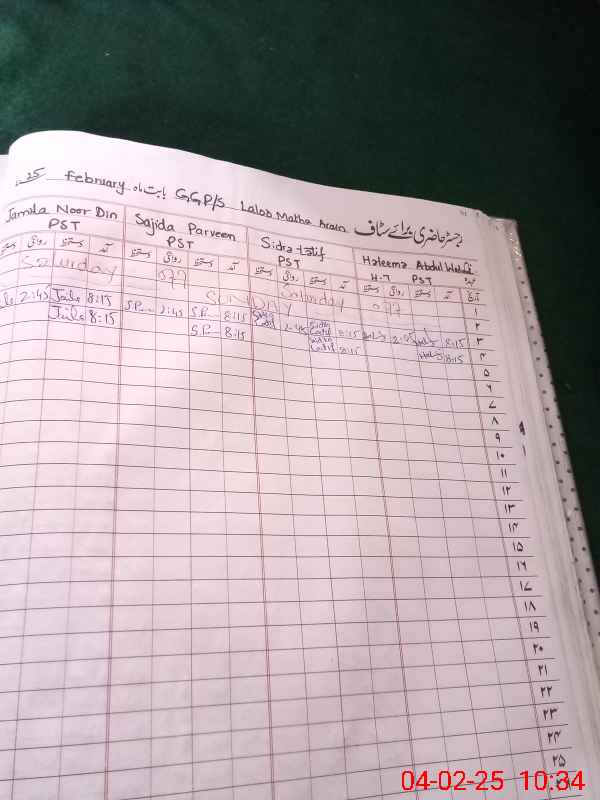 رجسٹر حاضری برائے سٹاف GGP/S Lalob Matha Arain بابت ماہ february 25
Haleema Abdul Wahid Sidra Latif Sajida Parveen Jamila Noor Din
H.T PST PST PST PST
تاریخ آمد دستخط روانگی دستخط آمد دستخط روانگی دستخط آمد دستخط روانگی دستخط آمد دستخط روانگی دستخط
۱ Saturday off Saturday off
۲ SUNDAY
۳ 8:15 8:15 Sidra Latif S.P 8:15 S.P 2:45 S.P 8:15 Jmila 2:45
۴ 8:15 8:15 Sidra Latif 8:15 S.P 8:15 Jmila
۵
۶
۷
۸
۹
۱۰
۱۱
۱۲
۱۳
۱۴
۱۵
۱۶
۱۷
۱۸
۱۹
۲۰
۲۱
۲۲
۲۳
۲۴
۲۵
04-02-25 10:34